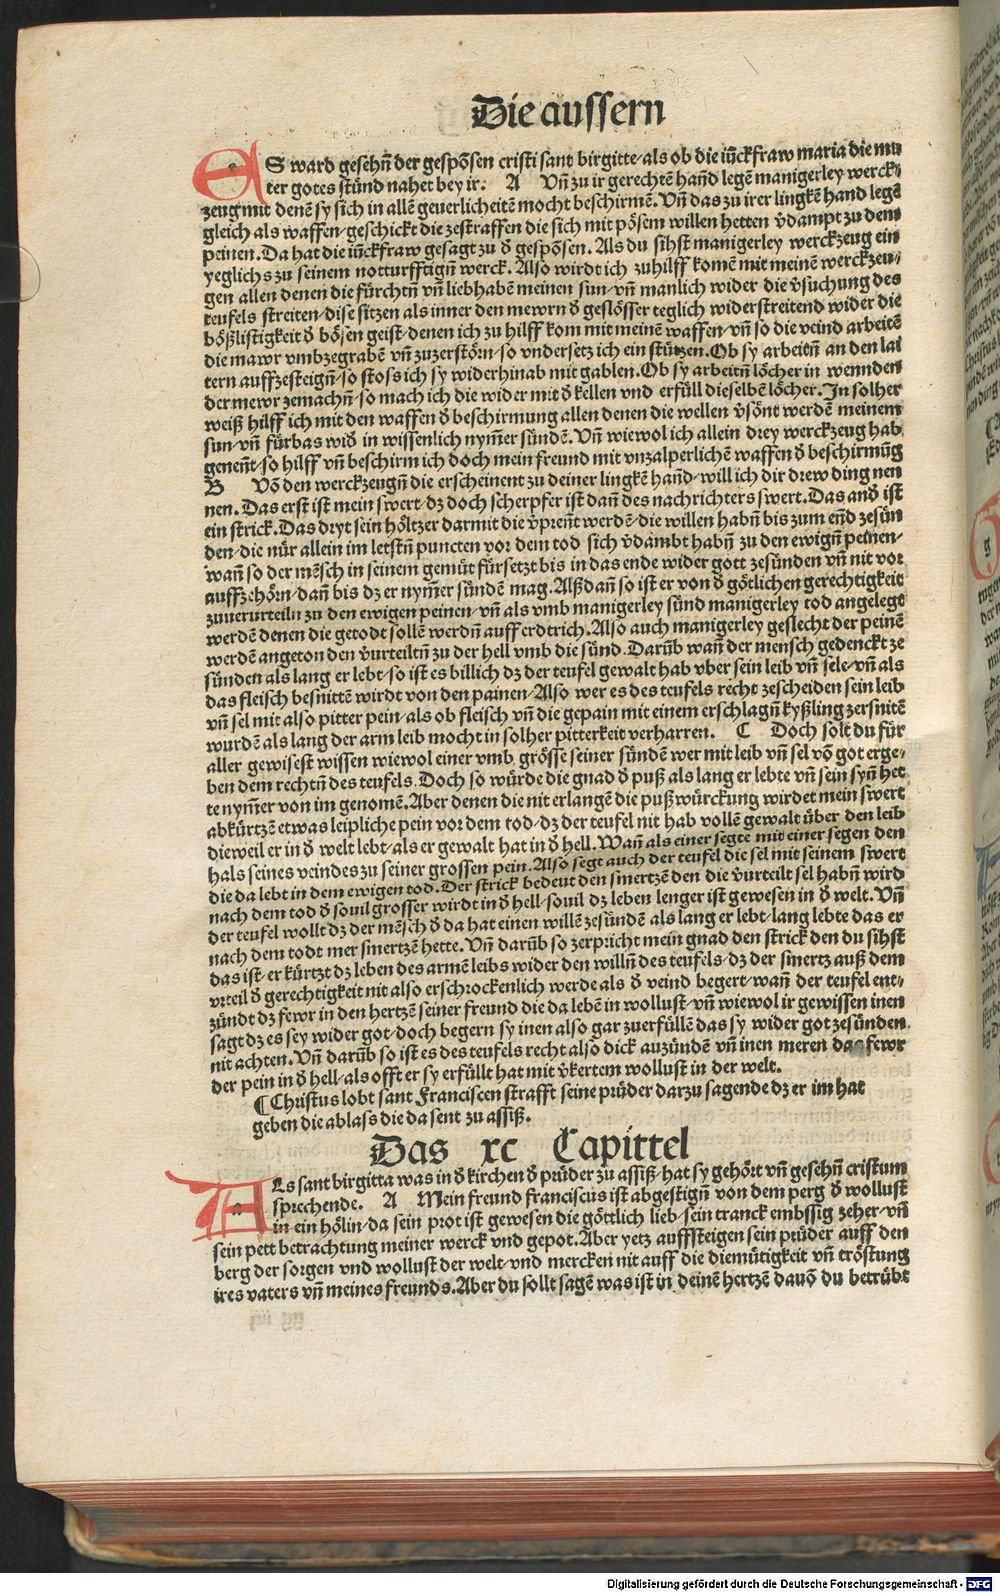 Die aussern
ES ward gesehñ der gespõsen cristi sant birgitte/als ob die iũckfraw maria die mu
ter gotes stünd nahet bey ir. A Vñ zu ir gerechtẽ hañd legẽ manigerley werck/
zeug mit denẽ sy sich in allẽ geuerlicheitẽ mocht beschirmẽ. Vñ das zu irer lingkẽ hand legẽ
gleich als waffen/geschickt die zestraffen die sich mit pösem willen hetten v̄dampt zu dem
peinen. Da hat die iũckfraw gesagt zu d̄ gespõsen. Als du sihst manigerley werckzeug ein
yeglichs zu seinem notturfftigñ werck. Also wirdt ich zuhilff komẽ mit meinẽ werckzeu/
gen allen denen die fürchtñ vñ liebhabẽ meinen sun/vñ manlich wider die v̄suchung des
teufels streiten/dise sitzen als inner den mewrn d̄ geslösser teglich widerstreitend wider die
bößlistigkeit d̄ bösen geist/denen ich zu hilff kom mit meinẽ waffen/vñ so die veind arbeitẽ
die mawr vmbzegrabẽ vñ zuzerstörn/so vndersetz ich ein stützen. Ob sy arbeitñ an den lai
tern auffzesteigñ/so stoss ich sy widerhinab mit gablen. Ob sy arbeitñ löcher in wennden
der mewr zemachñ/so mach ich die wider mit d̄ kellen vnd erfüll dieselbẽ löcher. In solher
weiß hilff ich mit den waffen d̄ beschirmung allen denen die wellen v̄sönt werdẽ meinem
sun/vñ fürbas wid̄ in wissenlich nym̃er sündẽ. Vñ wiewol ich allein drey werckzeug hab
geneñt/so hilff vñ beschirm ich doch mein freund mit vnzalperlichẽ waffen d̄ beschirmũg
B Võ den werckzeugñ die erscheinent zu deiner lingkẽ hañd/will ich dir drew ding nen
nen. Das erst ist mein swert/dz doch scherpfer ist dañ des nachrichters swert. Das and̄ ist
ein strick. Das dryt sein höltzer darmit die v̄preñt werdẽ/die willen habñ bis zum eñd zesün
den/die nür allein im letstñ puncten vor dem tod sich v̄dambt habñ zu den ewigñ peinen/
wañ so der mẽsch in seinem gemüt fürsetzt bis in das ende wider gott zesünden vñ nit vor
auffzehörn/dañ bis dz er nym̃er sündẽ mag. Alßdañ so ist er von d̄ götlichen gerechtigkeit
zuuerurteiln zu den ewigen peinen/vñ als vmb manigerley sünd manigerley tod angelegt
werdẽ denen die getodt sollẽ werdñ auff erdtrich. Also auch manigerley geslecht der peinẽ
werdẽ angeton den v̄urteiltñ zu der hell vmb die sünd. Darũb wañ der mensch gedenckt ze
sünden als lang er lebt/so ist es billich dz der teufel gewalt hab vber sein leib vñ sele/vñ als
das fleisch besnittẽ wirdt von den painen/Also wer es des teufels recht zescheiden sein leib
vñ sel mit also pitter pein/als ob fleisch vñ die gepain mit einem erschlagñ kyßling zersnitẽ
wurdẽ als lang der arm leib mocht in solher pitterkeit verharren. C Doch solt du für
aller gewisest wissen wiewol einer vmb grösse seiner sündẽ wer mit leib vñ sel võ got erge/
ben dem rechtñ des teufels. Doch so würde die gnad d̄ puß als lang er lebte vñ sein syñ het
te nym̃er von im genomẽ. Aber denen die nit erlangẽ die puß würckung wirdet mein swert
abkürtzẽ etwas leipliche pein vor dem tod/dz der teufel nit hab vollẽ gewalt über den leib
dieweil er in d̄ welt lebt/als er gewalt hat in d̄ hell. Wañ als einer segte mit einer segen den
hals seines veindes zu seiner grossen pein. Also segt auch der teufel die sel mit seinem swert
die da lebt in dem ewigen tod. Der strick bedeut den smertzẽ den die v̄urteilt sel habñ wird
nach dem tod d̄ souil grosser wirdt in d̄ hell/souil dz leben lenger ist gewesen in d̄ welt. Vñ
der teufel wollt dz der mẽsch d̄ da hat einen willẽ zesündẽ als lang er lebt/lang lebte das er
nach dem todt mer smertzẽ hette. Vñ darũb so zerpricht mein gnad den strick den du sihst
das ist/er kürtzt dz leben des armẽ leibs wider den willñ des teufels/dz der smertz auß dem
vrteil d̄ gerechtigkeit nit also erschrockenlich werde als d̄ veind begert/wañ der teufel ent/
zündt dz fewr in den hertzẽ seiner freund die da lebẽ in wollust/vñ wiewol ir gewissen inen
sagt dz es sey wider got/doch begern sy inen also gar zuerfüllẽ das sy wider got zesünden
nit achten. Vñ darũb so ist es des teufels recht also dick anzündẽ vñ inen meren das fewr
der pein in d̄ hell/als offt er sy erfüllt hat mit v̄kertem wollust in der welt.
¶ Christus lobt sant Franciscen strafft seine prüder darzu sagende dz er im hat
geben die ablass die da sent zu assiß.
Das xc Capittel
ALs sant birgitta was in d̄ kirchen d̄ prüder zu assiß/hat sy gehört vñ gesehñ cristum
sprechende. A Mein freund franciscus ist abgestigñ von dem perg d̄ wollust
in ein hölin/da sein prot ist gewesen die göttlich lieb/sein tranck embssig zeher/vñ
sein pett betrachtung meiner werck vnd gepot. Aber yetz auffsteigen sein prüder auff den
berg der sorgen vnd wollust der welt/vnd mercken nit auff die diemütigkeit vñ tröstung
ires vaters vñ meines freunds. Aber du sollt sagẽ was ist in deinẽ hertzẽ dauõ du betrübt
Digitalisierung gefördert durch die Deutsche Forschungsgemeinschaft - DFG